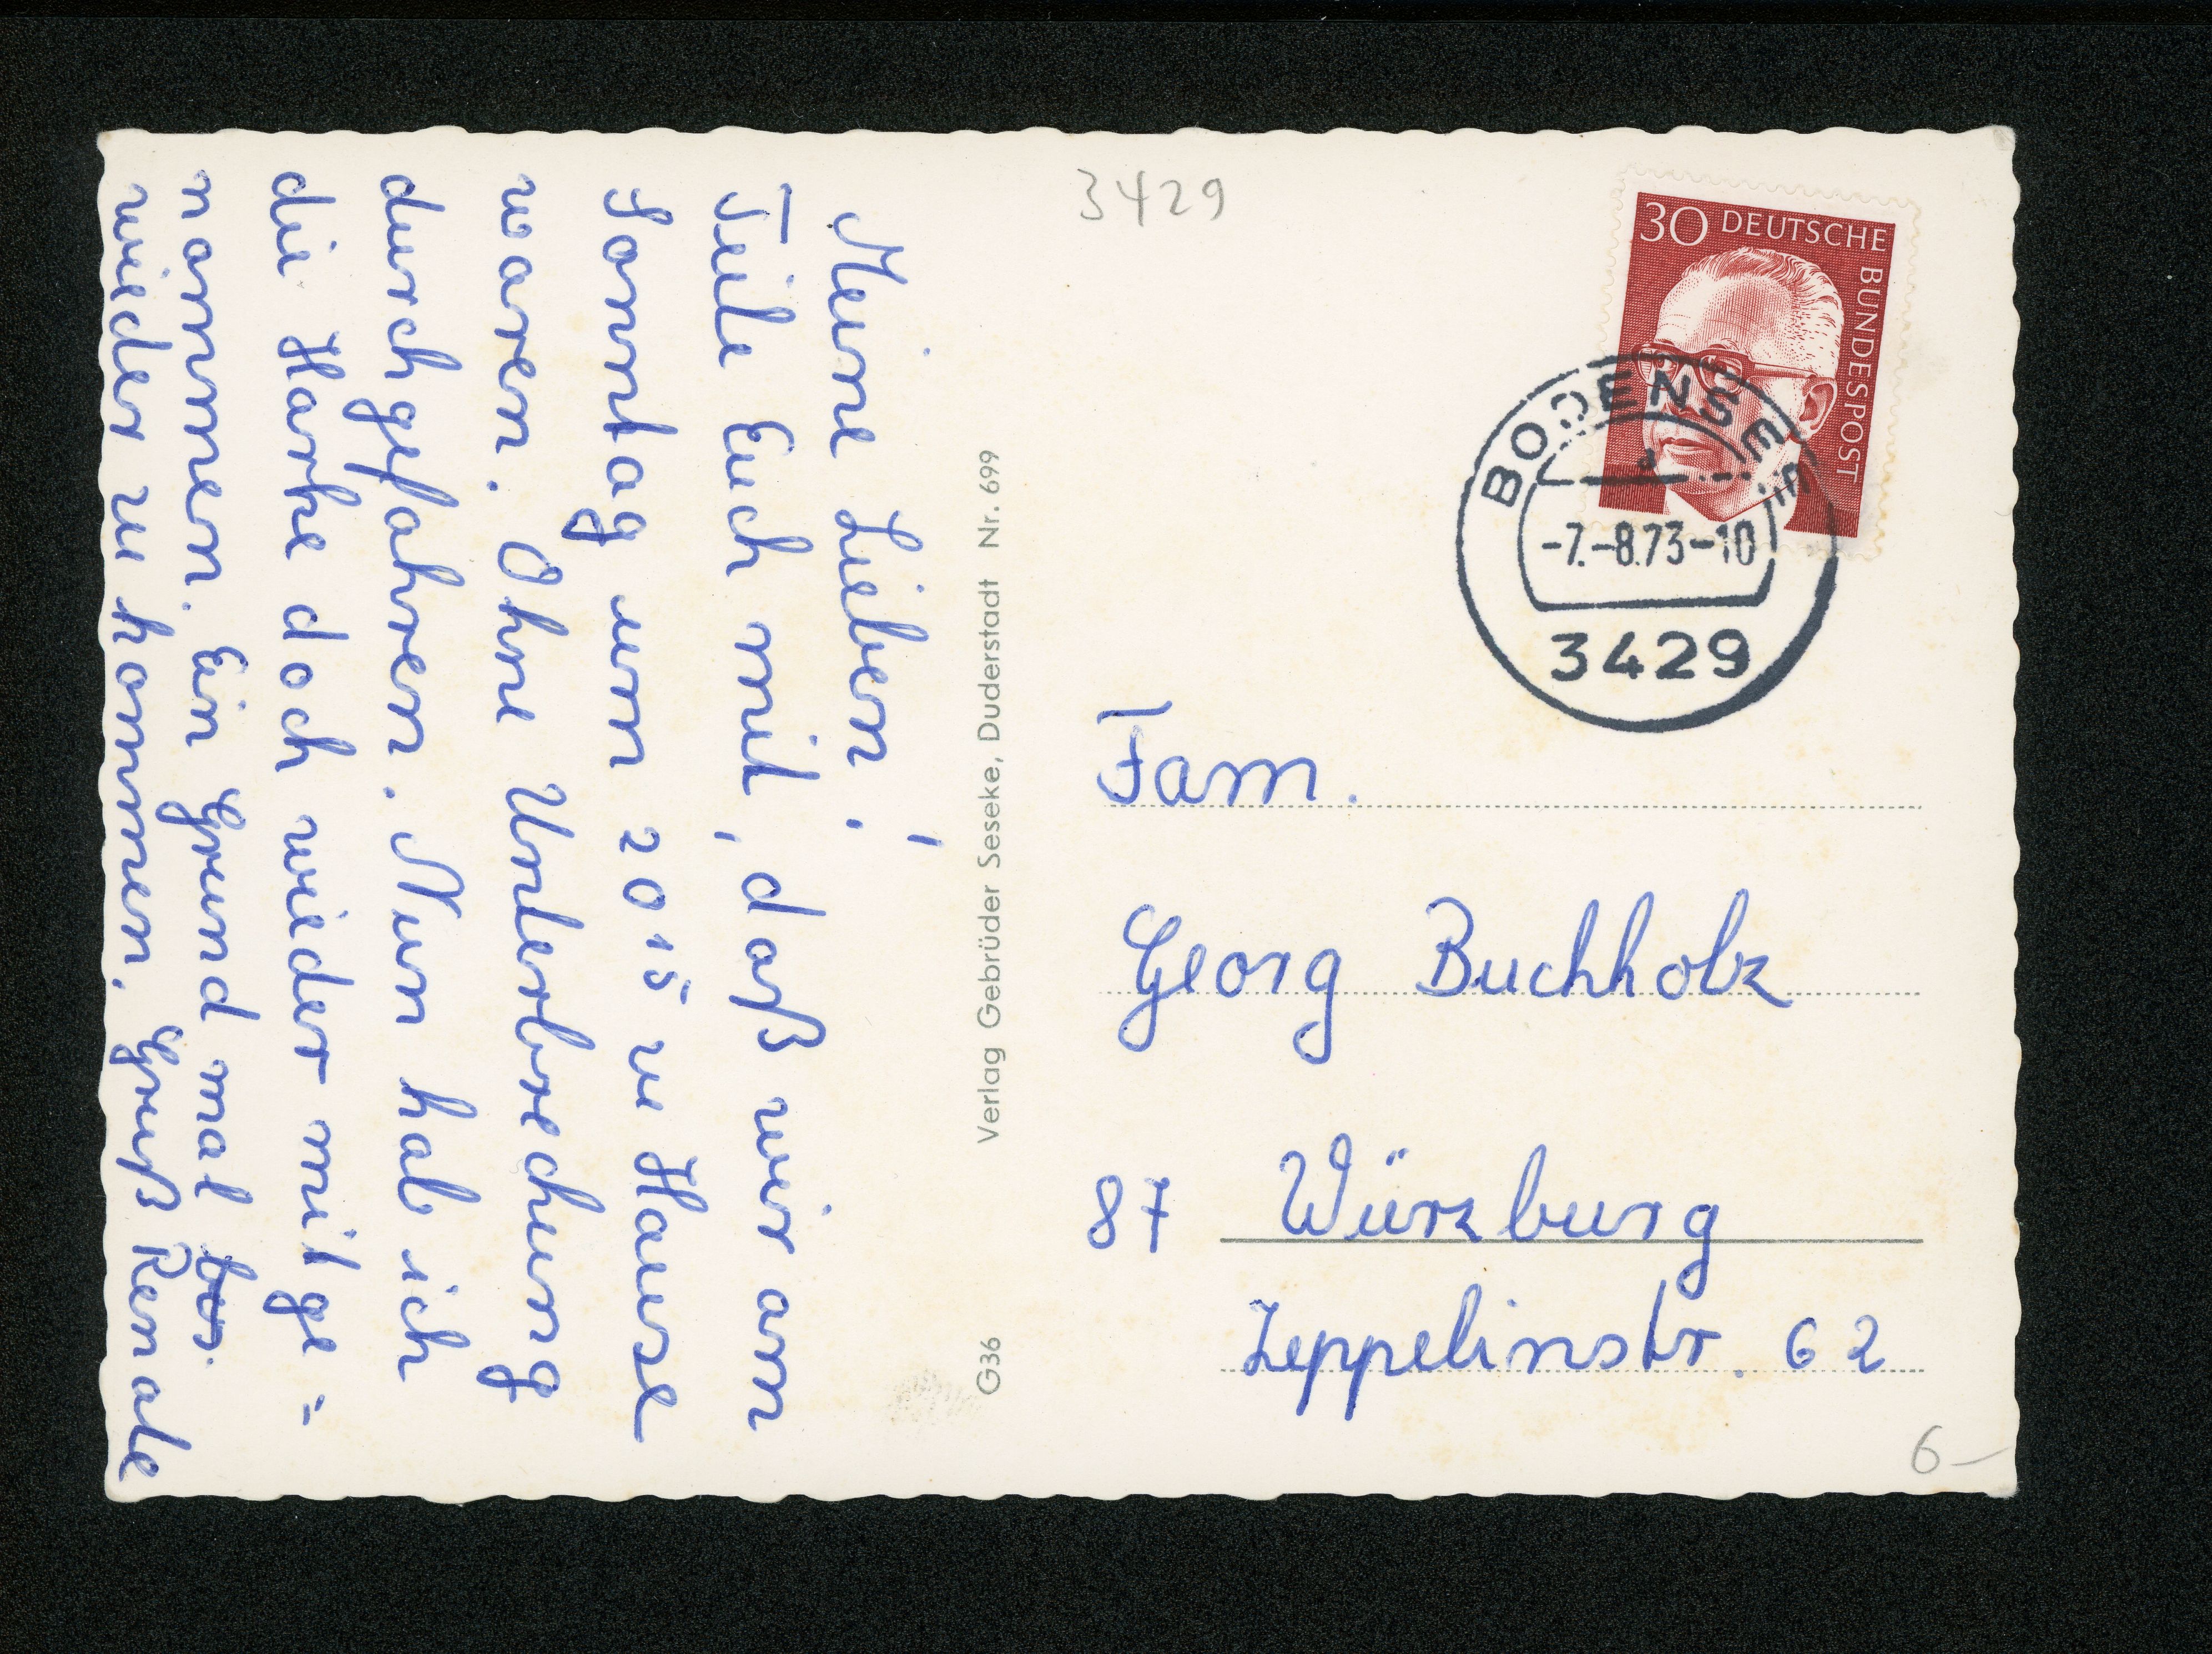 Meine Lieben!
Teile Euch mit, daß wir am
Sonntag um 20 15 zu Hause
waren. Ohne Unterbrechung
durchgefahren. Nun hab ich
die Harke doch wieder mitge=
nommen. Ein Grund mal
wieder zu kommen. Gruß Renate
Verlag Gebrüder Seseke, Duderstadt Nr. 699
G36
3429
30 DEUTSCHE BUNDESPOST
BODENSEE
d
-7.-8.73-10
3429
Fam.
Georg Buchholz
87 Würzburg
Zeppelinstr. 62
6-